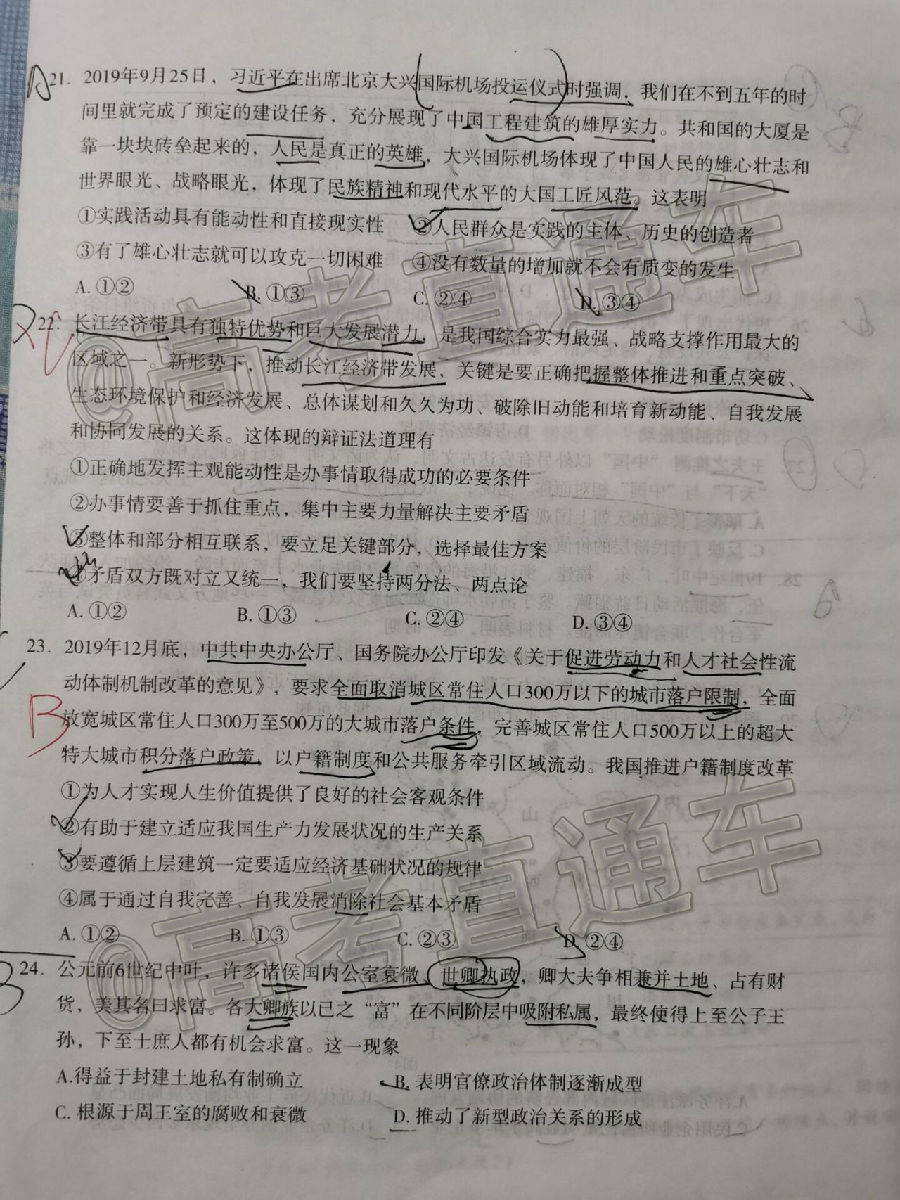 A
21. 2019年9月25日，习近平在出席北京大兴国际机场投运仪式时强调，我们在不到五年的时
间里就完成了预定的建设任务，充分展现了中国工程建筑的雄厚实力。共和国的大厦是
靠一块块砖垒起来的，人民是真正的英雄，大兴国际机场体现了中国人民的雄心壮志和
世界眼光、战略眼光，体现了民族精神和现代水平的大国工匠风范。这表明
①实践活动具有能动性和直接现实性 ②人民群众是实践的主体、历史的创造者
③有了雄心壮志就可以攻克一切困难 ④没有数量的增加就不会有质变的发生
A. ①② B. ①③ C. ②④ D. ③④
22. 长江经济带具有独特优势和巨大发展潜力，是我国综合实力最强、战略支撑作用最大的
区域之一。新形势下，推动长江经济带发展，关键是要正确把握整体推进和重点突破、
生态环境保护和经济发展、总体谋划和久久为功、破除旧动能和培育新动能、自我发展
和协同发展的关系。这体现的辩证法道理有
①正确地发挥主观能动性是办事情取得成功的必要条件
②办事情要善于抓住重点，集中主要力量解决主要矛盾
③整体和部分相互联系，要立足关键部分，选择最佳方案
④矛盾双方既对立又统一，我们要坚持两分法、两点论
A. ①② B. ①③ C. ②④ D. ③④
23. 2019年12月底，中共中央办公厅、国务院办公厅印发《关于促进劳动力和人才社会性流
动体制机制改革的意见》，要求全面取消城区常住人口300万以下的城市落户限制，全面
B
放宽城区常住人口300万至500万的大城市落户条件，完善城区常住人口500万以上的超大
特大城市积分落户政策，以户籍制度和公共服务牵引区域流动。我国推进户籍制度改革
①为人才实现人生价值提供了良好的社会客观条件
②有助于建立适应我国生产力发展状况的生产关系
③要遵循上层建筑一定要适应经济基础状况的规律
④属于通过自我完善、自我发展消除社会基本矛盾
A. ①② B. ①③ C. ②③ D. ②④
24. 公元前6世纪中叶，许多诸侯国内公室衰微，世卿执政，卿大夫争相兼并土地、占有财
货，美其名曰求富。各大卿族以已之“富”在不同阶层中吸附私属，最终使得上至公子王
孙，下至士庶人都有机会求富。这一现象
A.得益于封建土地私有制确立 B. 表明官僚政治体制逐渐成型
C. 根源于周王室的腐败和衰微 D. 推动了新型政治关系的形成
@高考直通车
@高考直通车